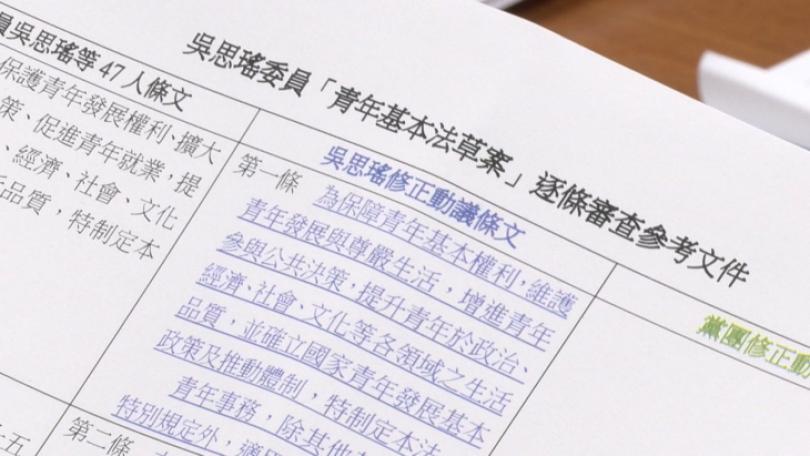 吳思瑤委員「青年基本法草案」逐條審查參考文件
員吳思瑤等47人條文
保護青年發展權利、擴大
策、促進青年就業，提
、經濟、社會、文化
品質，特制定本
吳思瑤修正動議條文
第一條 為保障青年基本權利，維護
青年發展與尊嚴生活，增進青年
參與公共決策，提升青年於政治、
經濟、社會、文化等各領域之生活
品質，並確立國家青年發展基本
政策及推動體制，特制定本法
青年事務，除其他
特別規定外，適用
第二條
五
黨團修正動